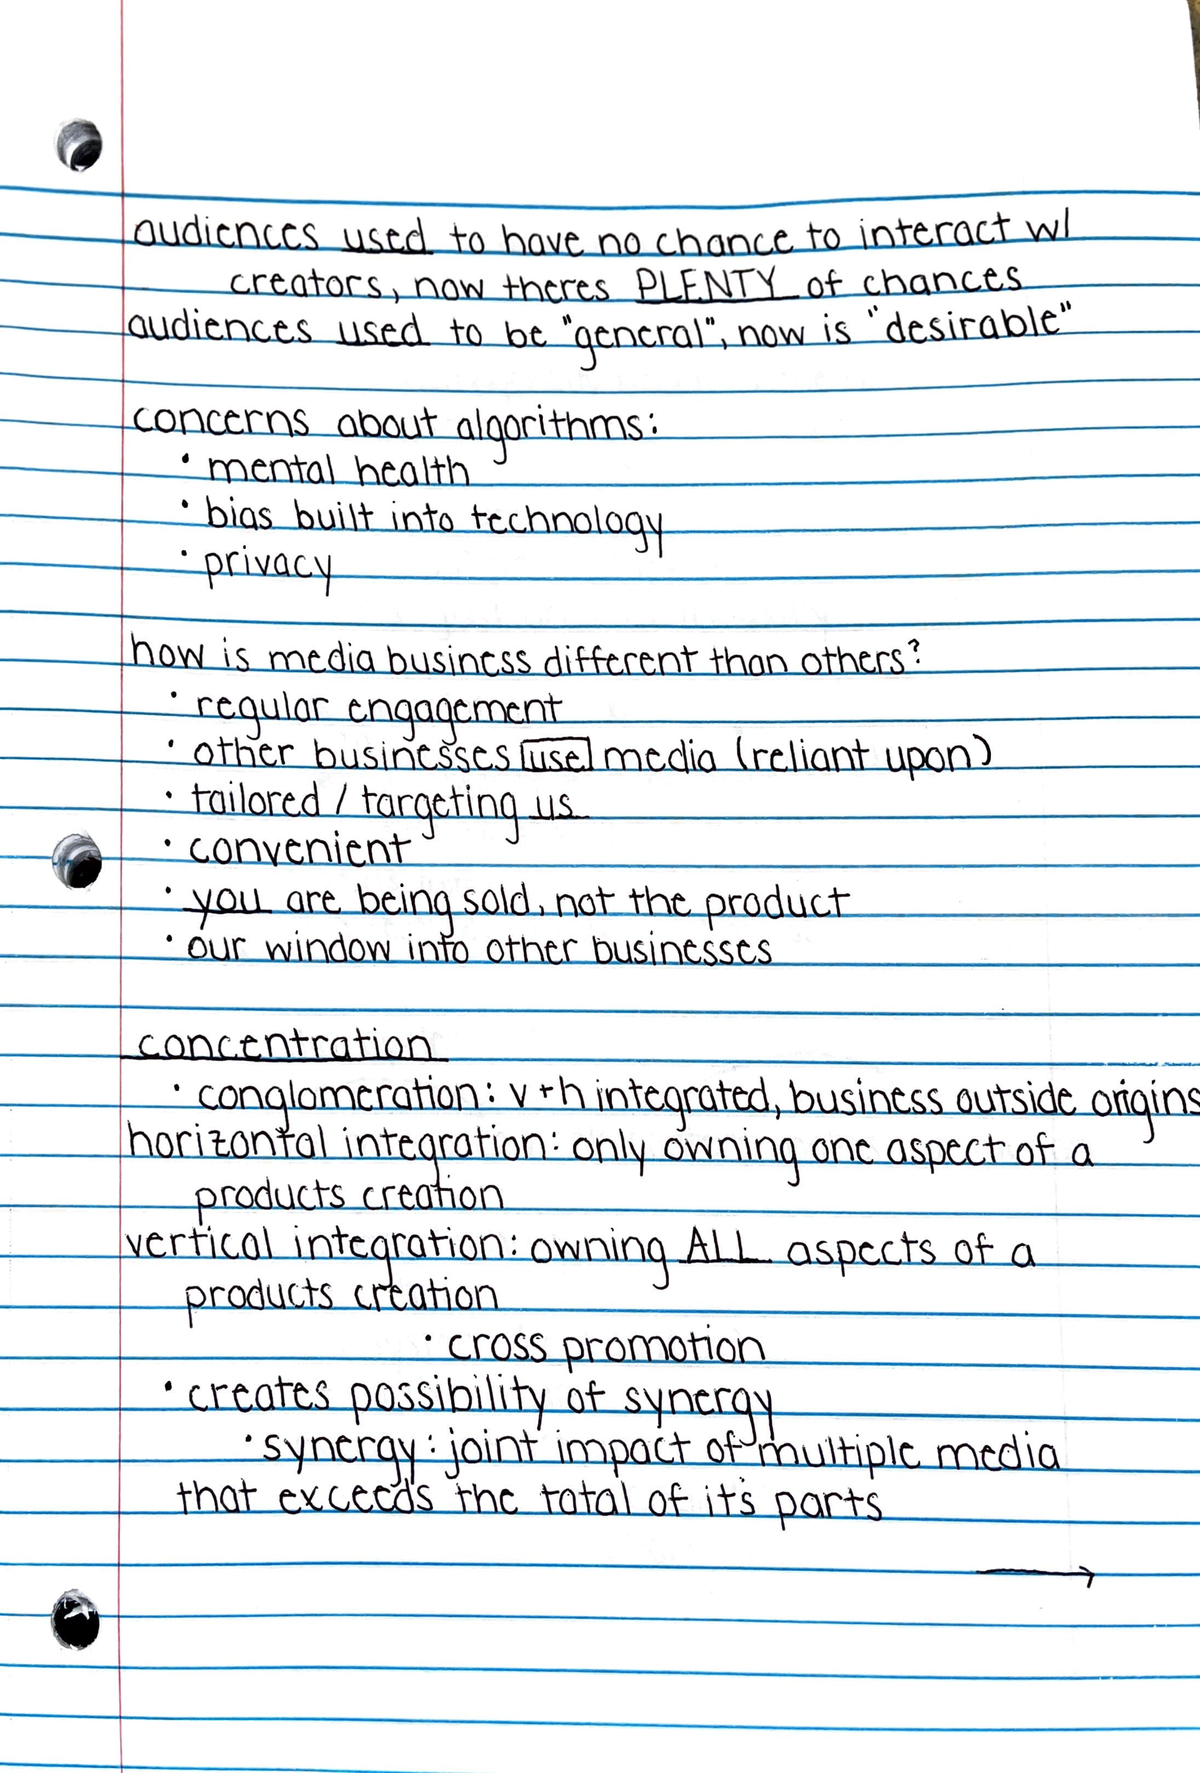 audiences used to have no chance to interact w/
creators, now theres PLENTY of chances
audiences used to be "general", now is "desirable"
concerns about algorithms:
• mental health
• bias built into technology
• privacy
how is media business different than others?
• regular engagement
• other businesses use media (reliant upon)
• tailored / targeting us
• convenient
• you are being sold, not the product
• our window into other businesses
concentration
• conglomeration: v+h integrated, business outside origins
horizontal integration: only owning one aspect of a
products creation
vertical integration: owning ALL aspects of a
products creation
• cross promotion
• creates possibility of synergy
• synergy: joint impact of multiple media
that exceeds the total of it's parts
→